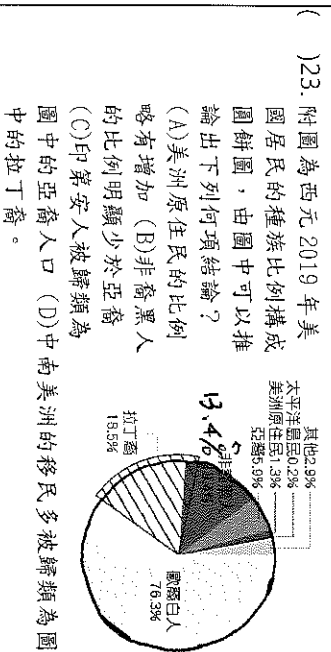 (　)23. 附圖為西元 2019 年美
國居民的種族比例構成
圓餅圖，由圖中可以推
論出下列何項結論？
(A)美洲原住民的比例
略有增加 (B)非裔黑人
的比例明顯少於亞裔
(C)印第安人被歸類為
圖中的亞裔人口 (D)中南美洲的移民多被歸類為圖
中的拉丁裔。
其他2.9%
太平洋島民0.2%
美洲原住民1.3%
亞裔5.9%
13.4%
歐裔白人
76.3%
拉丁裔
18.5%